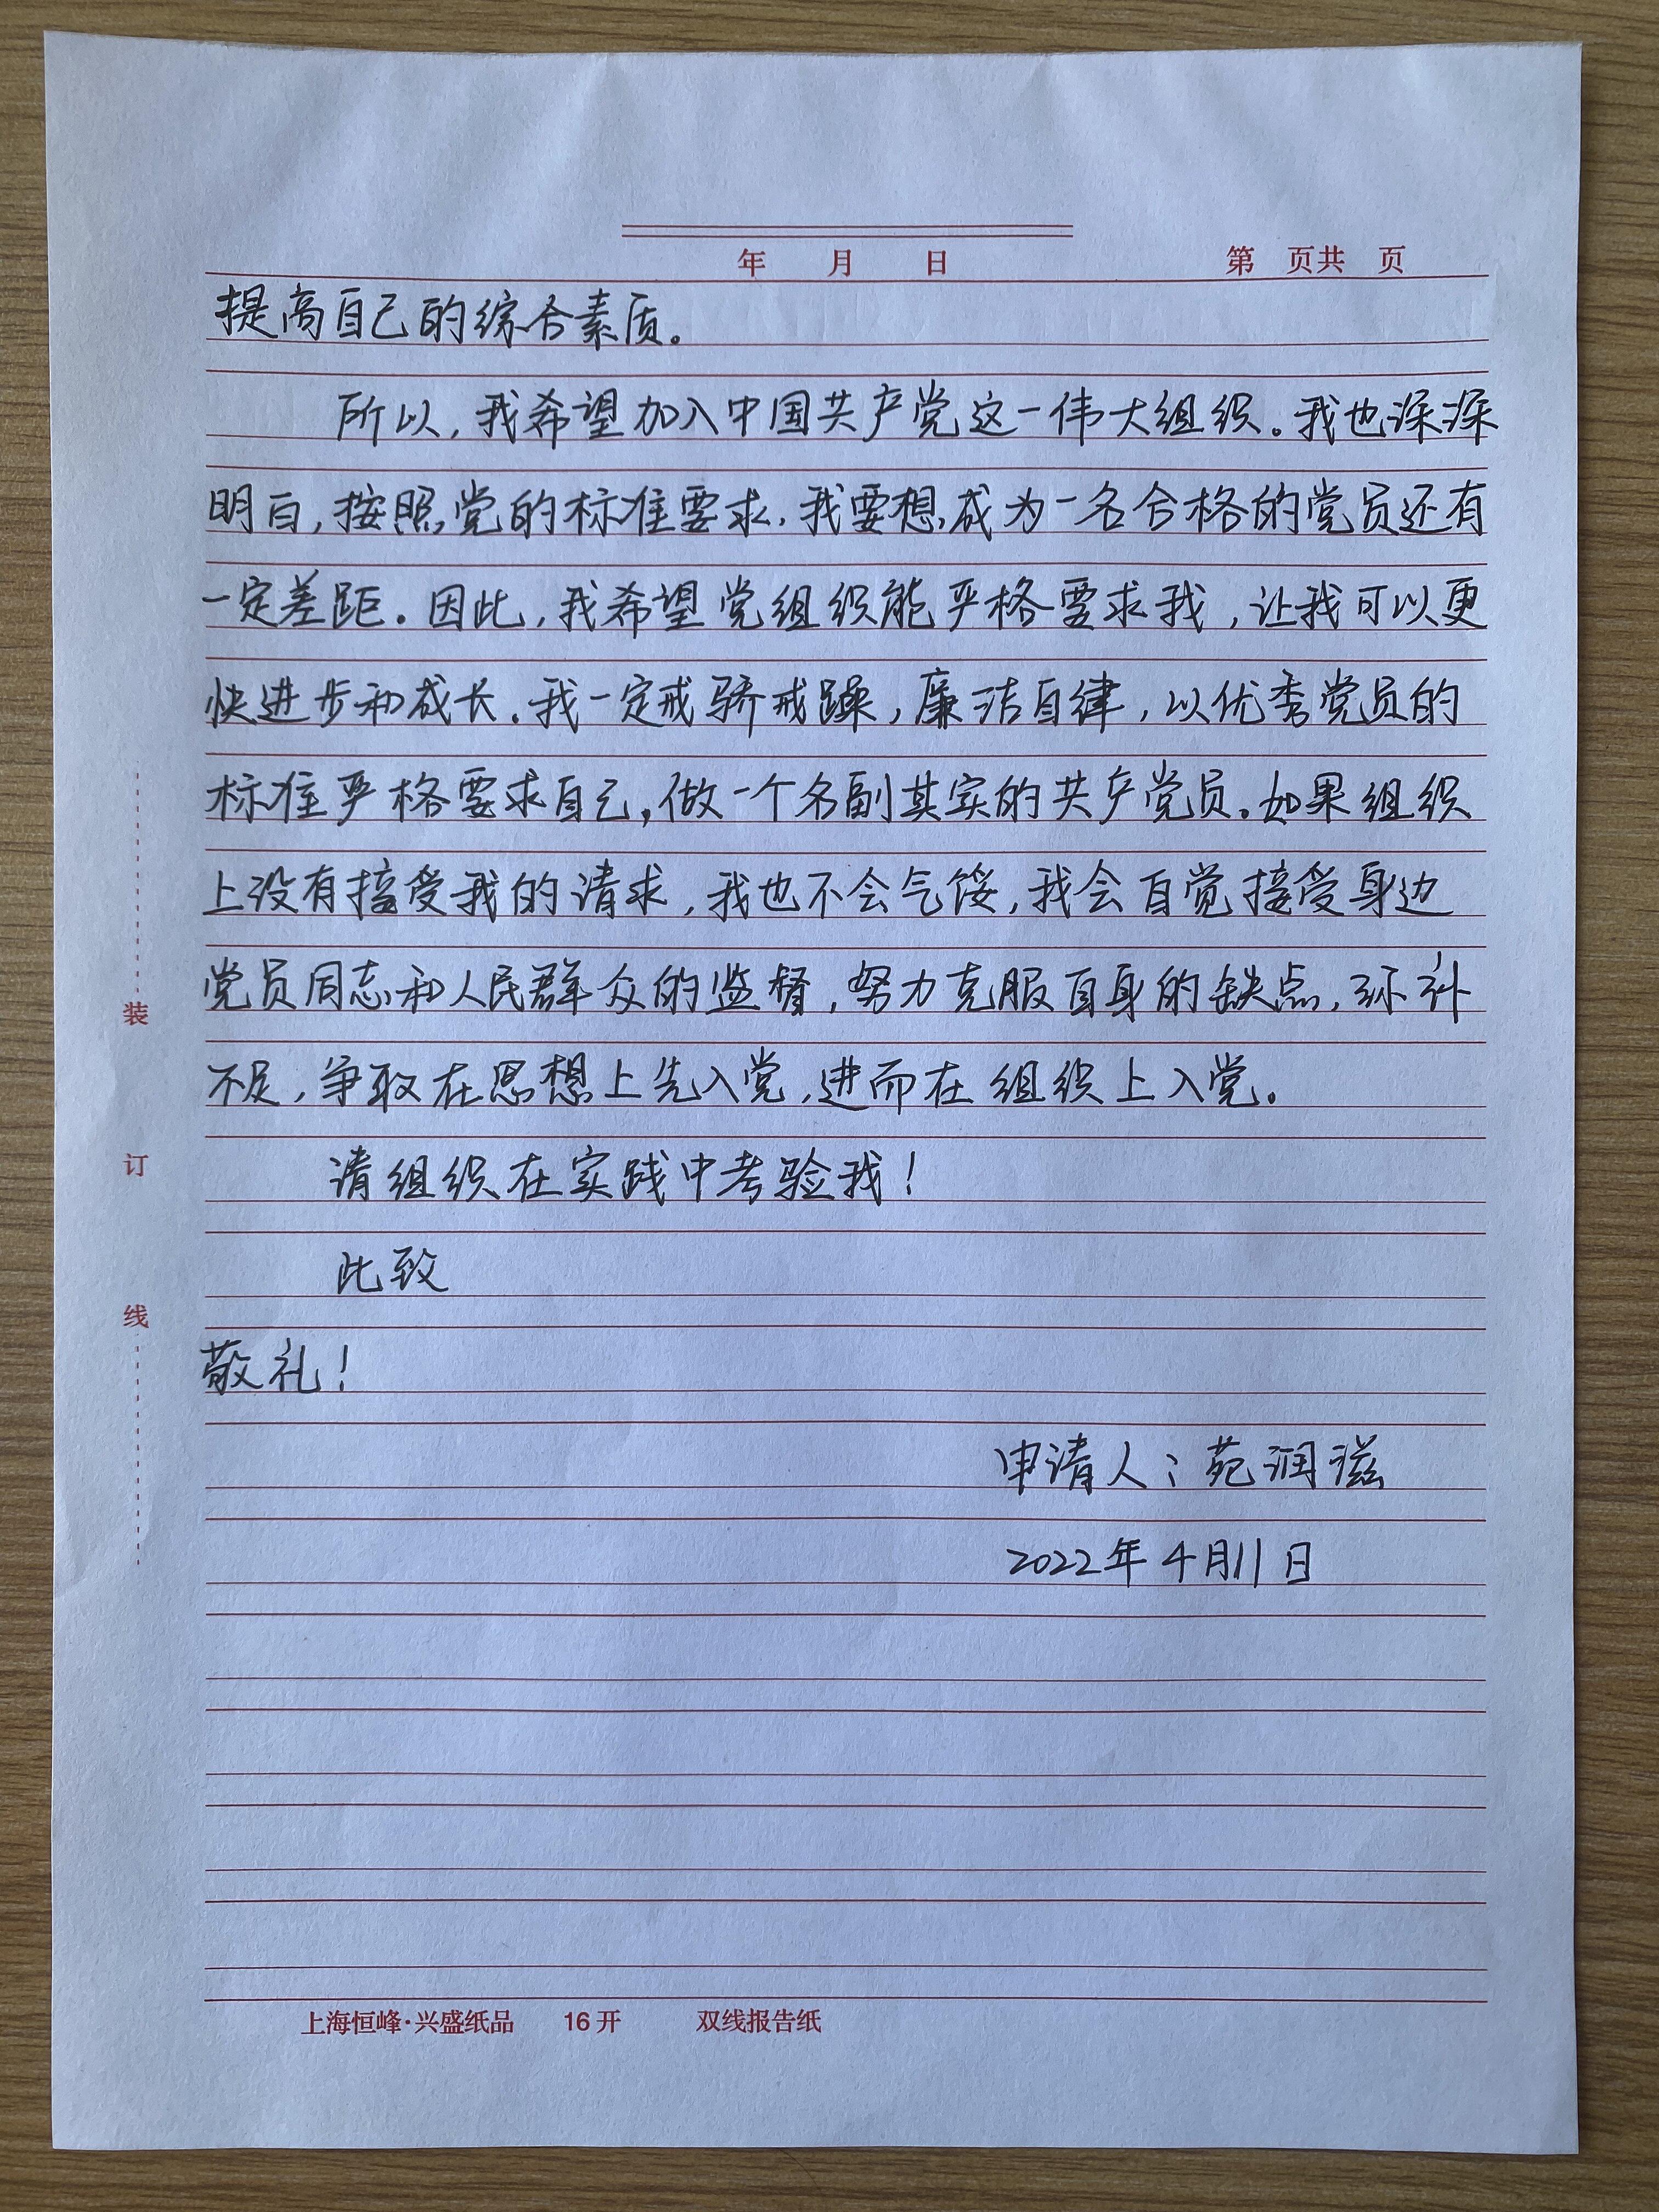 年 月 日 第 页共 页
提高自己的综合素质。
所以，我希望加入中国共产党这一伟大组织。我也深深
明白，按照党的标准要求，我要想成为一名合格的党员还有
一定差距。因此，我希望党组织能严格要求我，让我可以更
快进步和成长。我一定戒骄戒躁，廉洁自律，以优秀党员的
标准严格要求自己，做一个名副其实的共产党员。如果组织
上没有接受我的请求，我也不会气馁，我会自觉接受身边
党员同志和人民群众的监督，努力克服自身的缺点，弥补
不足，争取在思想上先入党，进而在组织上入党。
请组织在实践中考验我！
此致
敬礼！
申请人：苑润滋
2022年4月11日
装
订
线
上海恒峰·兴盛纸品 16开 双线报告纸